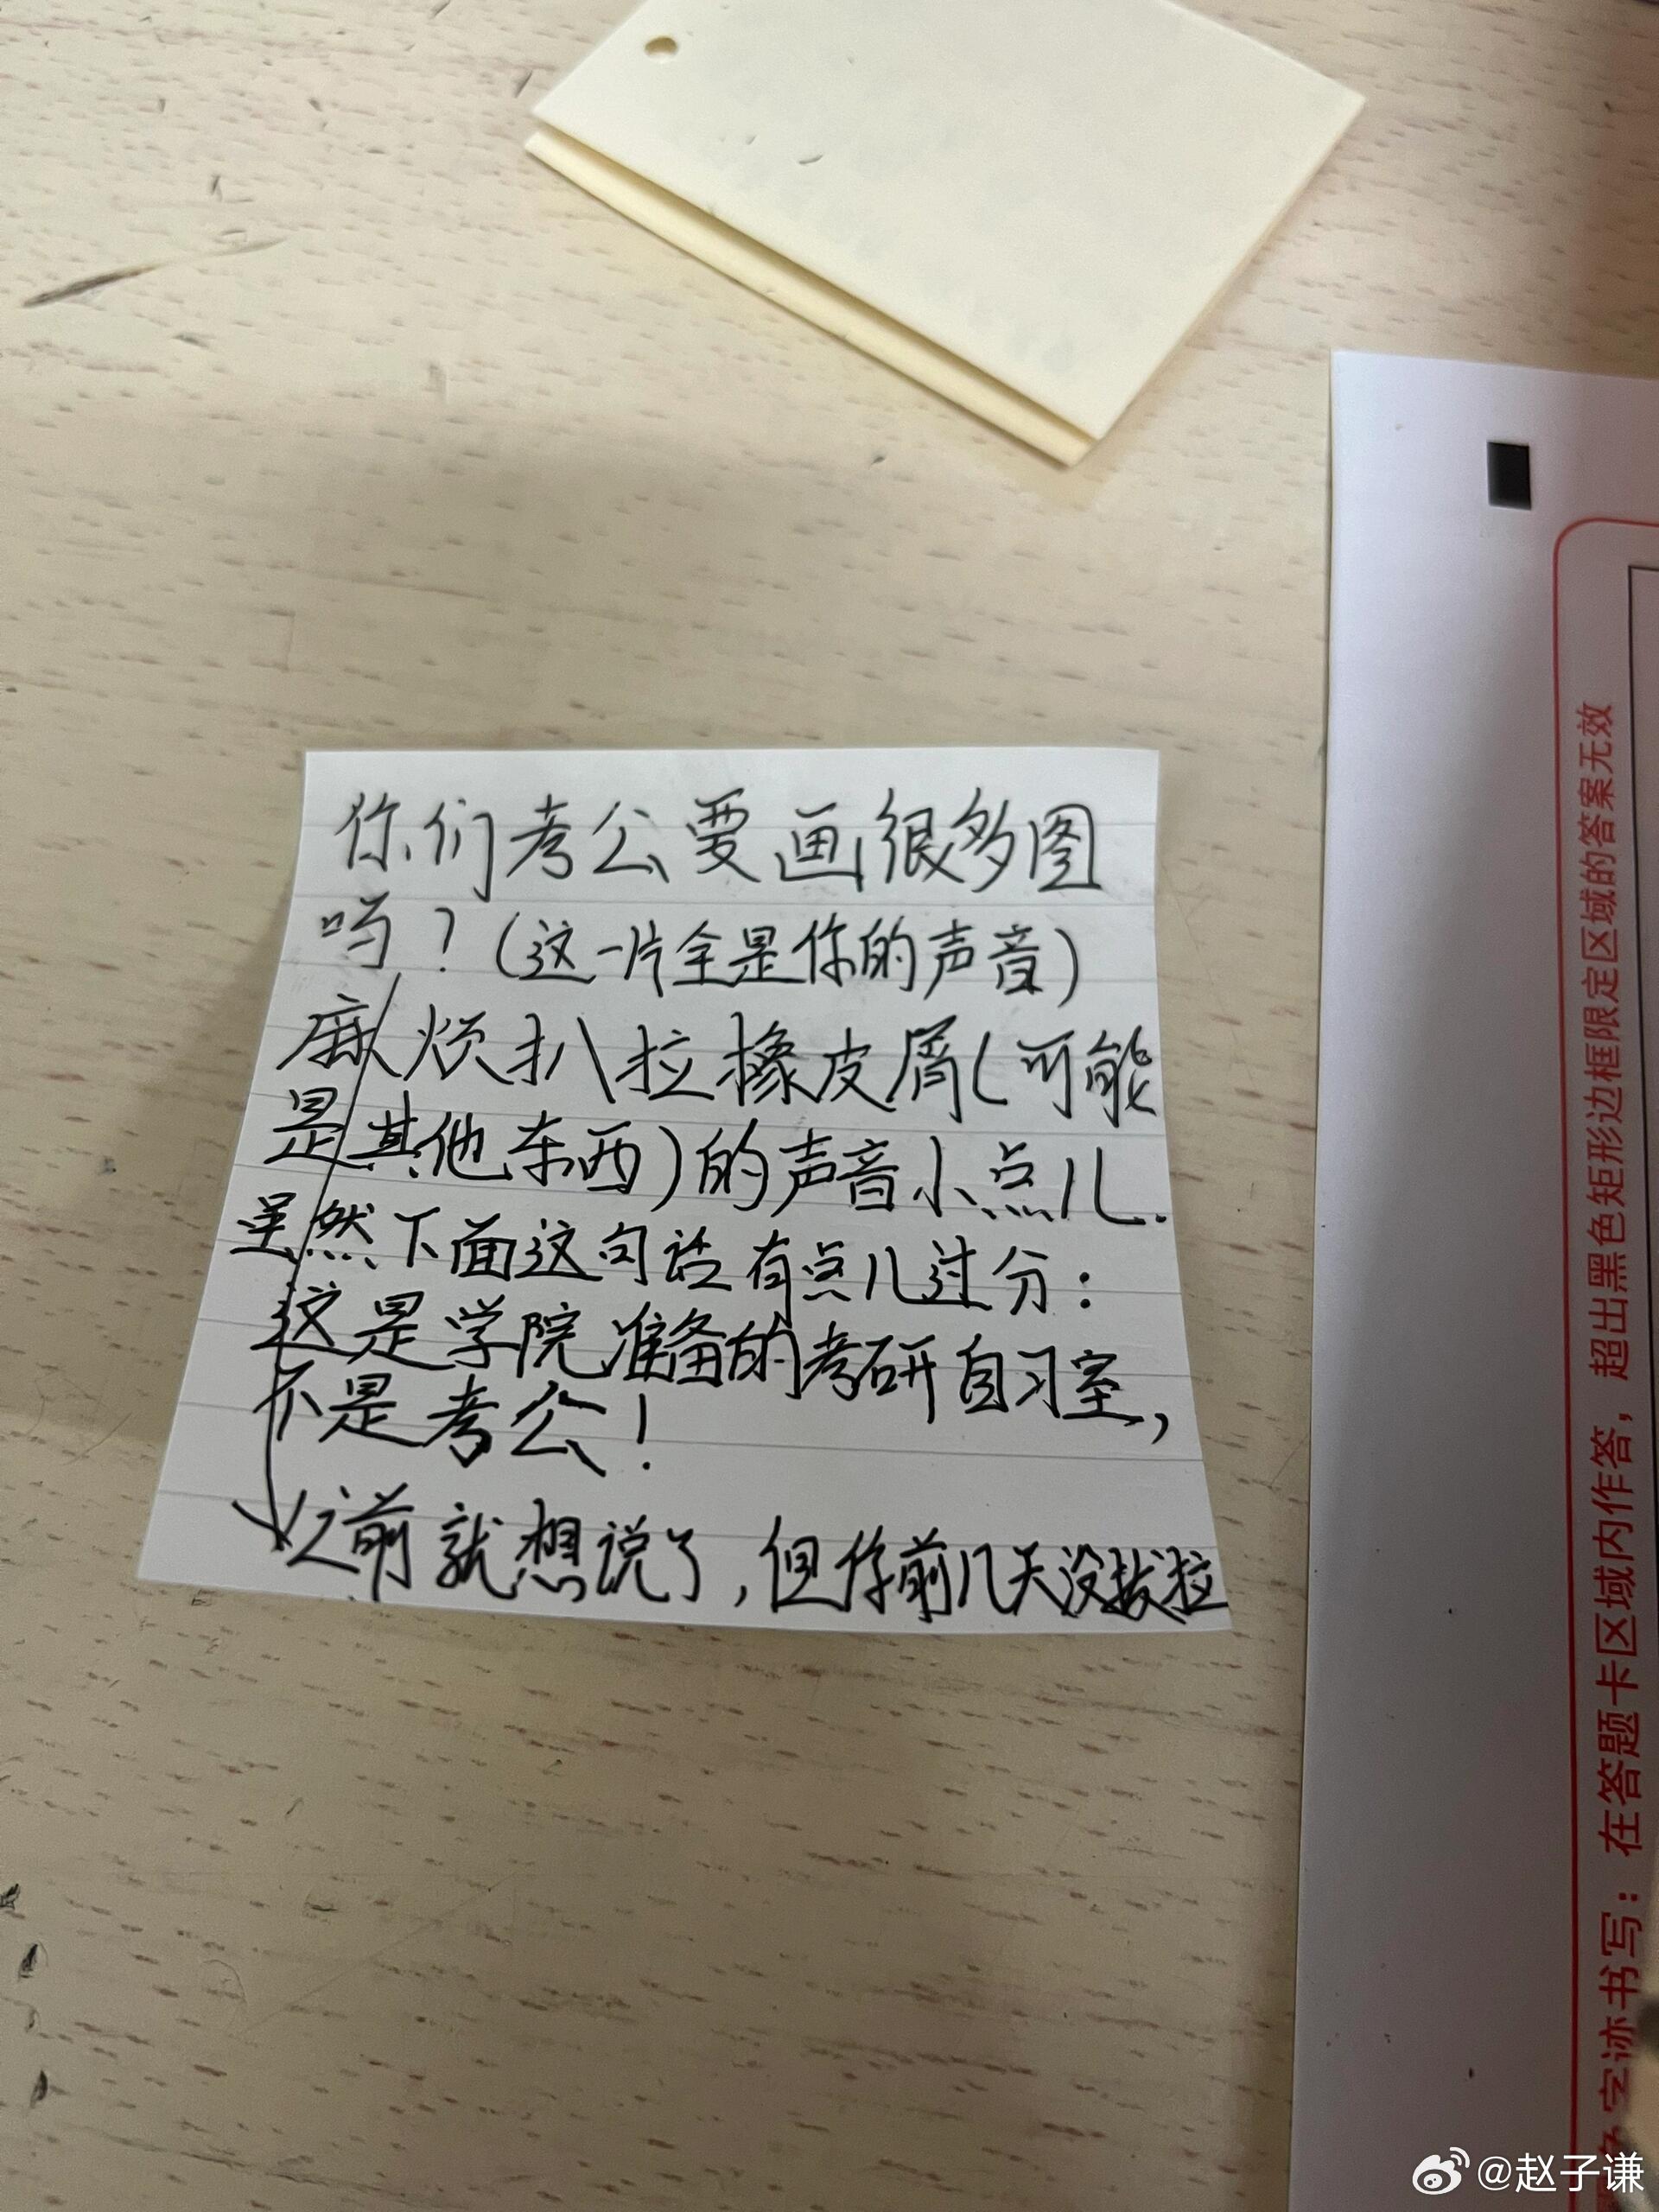 你们考公要画很多图
吗？（这一片全是你的声音）
麻烦扒拉橡皮屑（可能
是其他东西）的声音小点儿.
虽然下面这句话有点儿过分：
这是学院准备的考研自习室，
不是考公！
之前就想说了，但你前几天没拔拉
在答题卡区域内作答，超出黑色矩形边框限定区域的答案无效
字迹书写：
@赵子谦